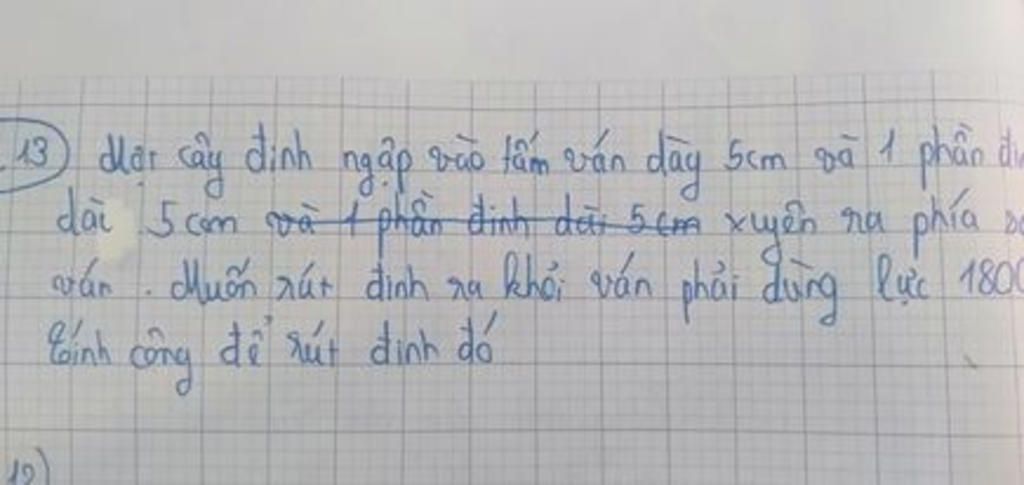 13) Một cây đinh ngập vào tấm ván dày 5cm và 1 phần
dài 5cm và 1 phần đinh dài 5cm xuyên ra phía
ván. Muốn rút đinh ra khỏi ván phải dùng lực 1800
tính công để rút đinh đó
12)